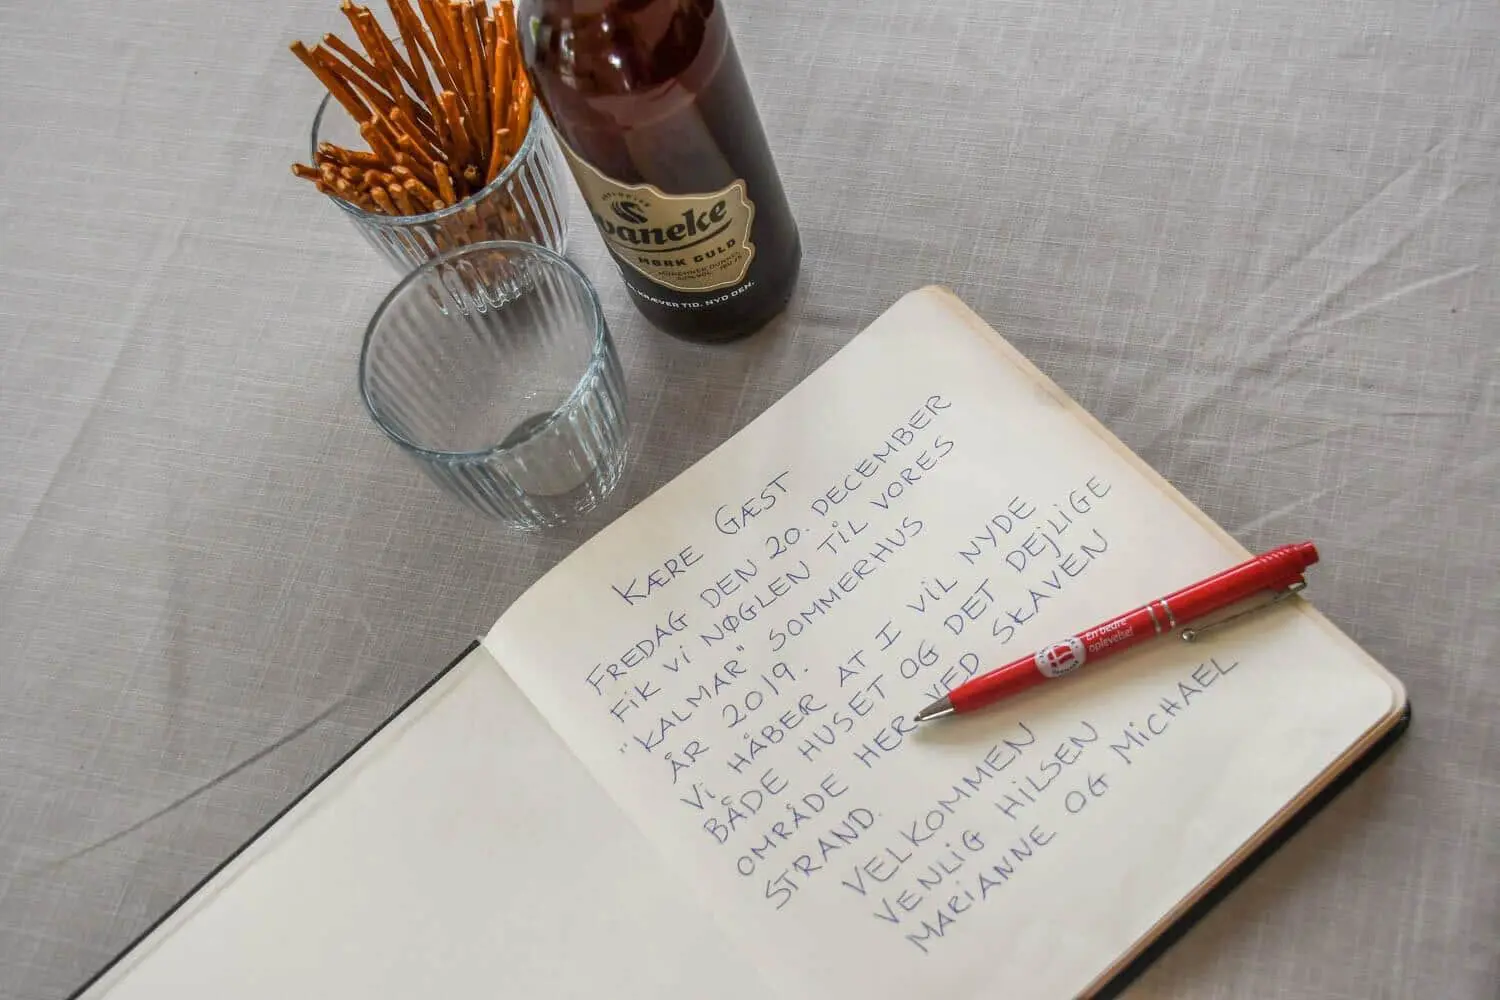 vaneke
MØRK GULD
MÜNCHNER DUNKEL
KRÆVER TID. NYD DEN.
KÆRE GÆST
FREDAG DEN 20. DECEMBER
FIK Vi NØGLEN TiL VORES
"KALMAR" SOMMERHUS
ÅR 2019.
Vi HÅBER AT I ViL NYDE
BÅDE HUSET OG DET DEJLiGE
OMRÅDE HER VED SKAVEN
STRAND.
VELKOMMEN
VENLiG HiLSEN
MARiANNE OG MiCHAEL
En bedre
oplevelse!